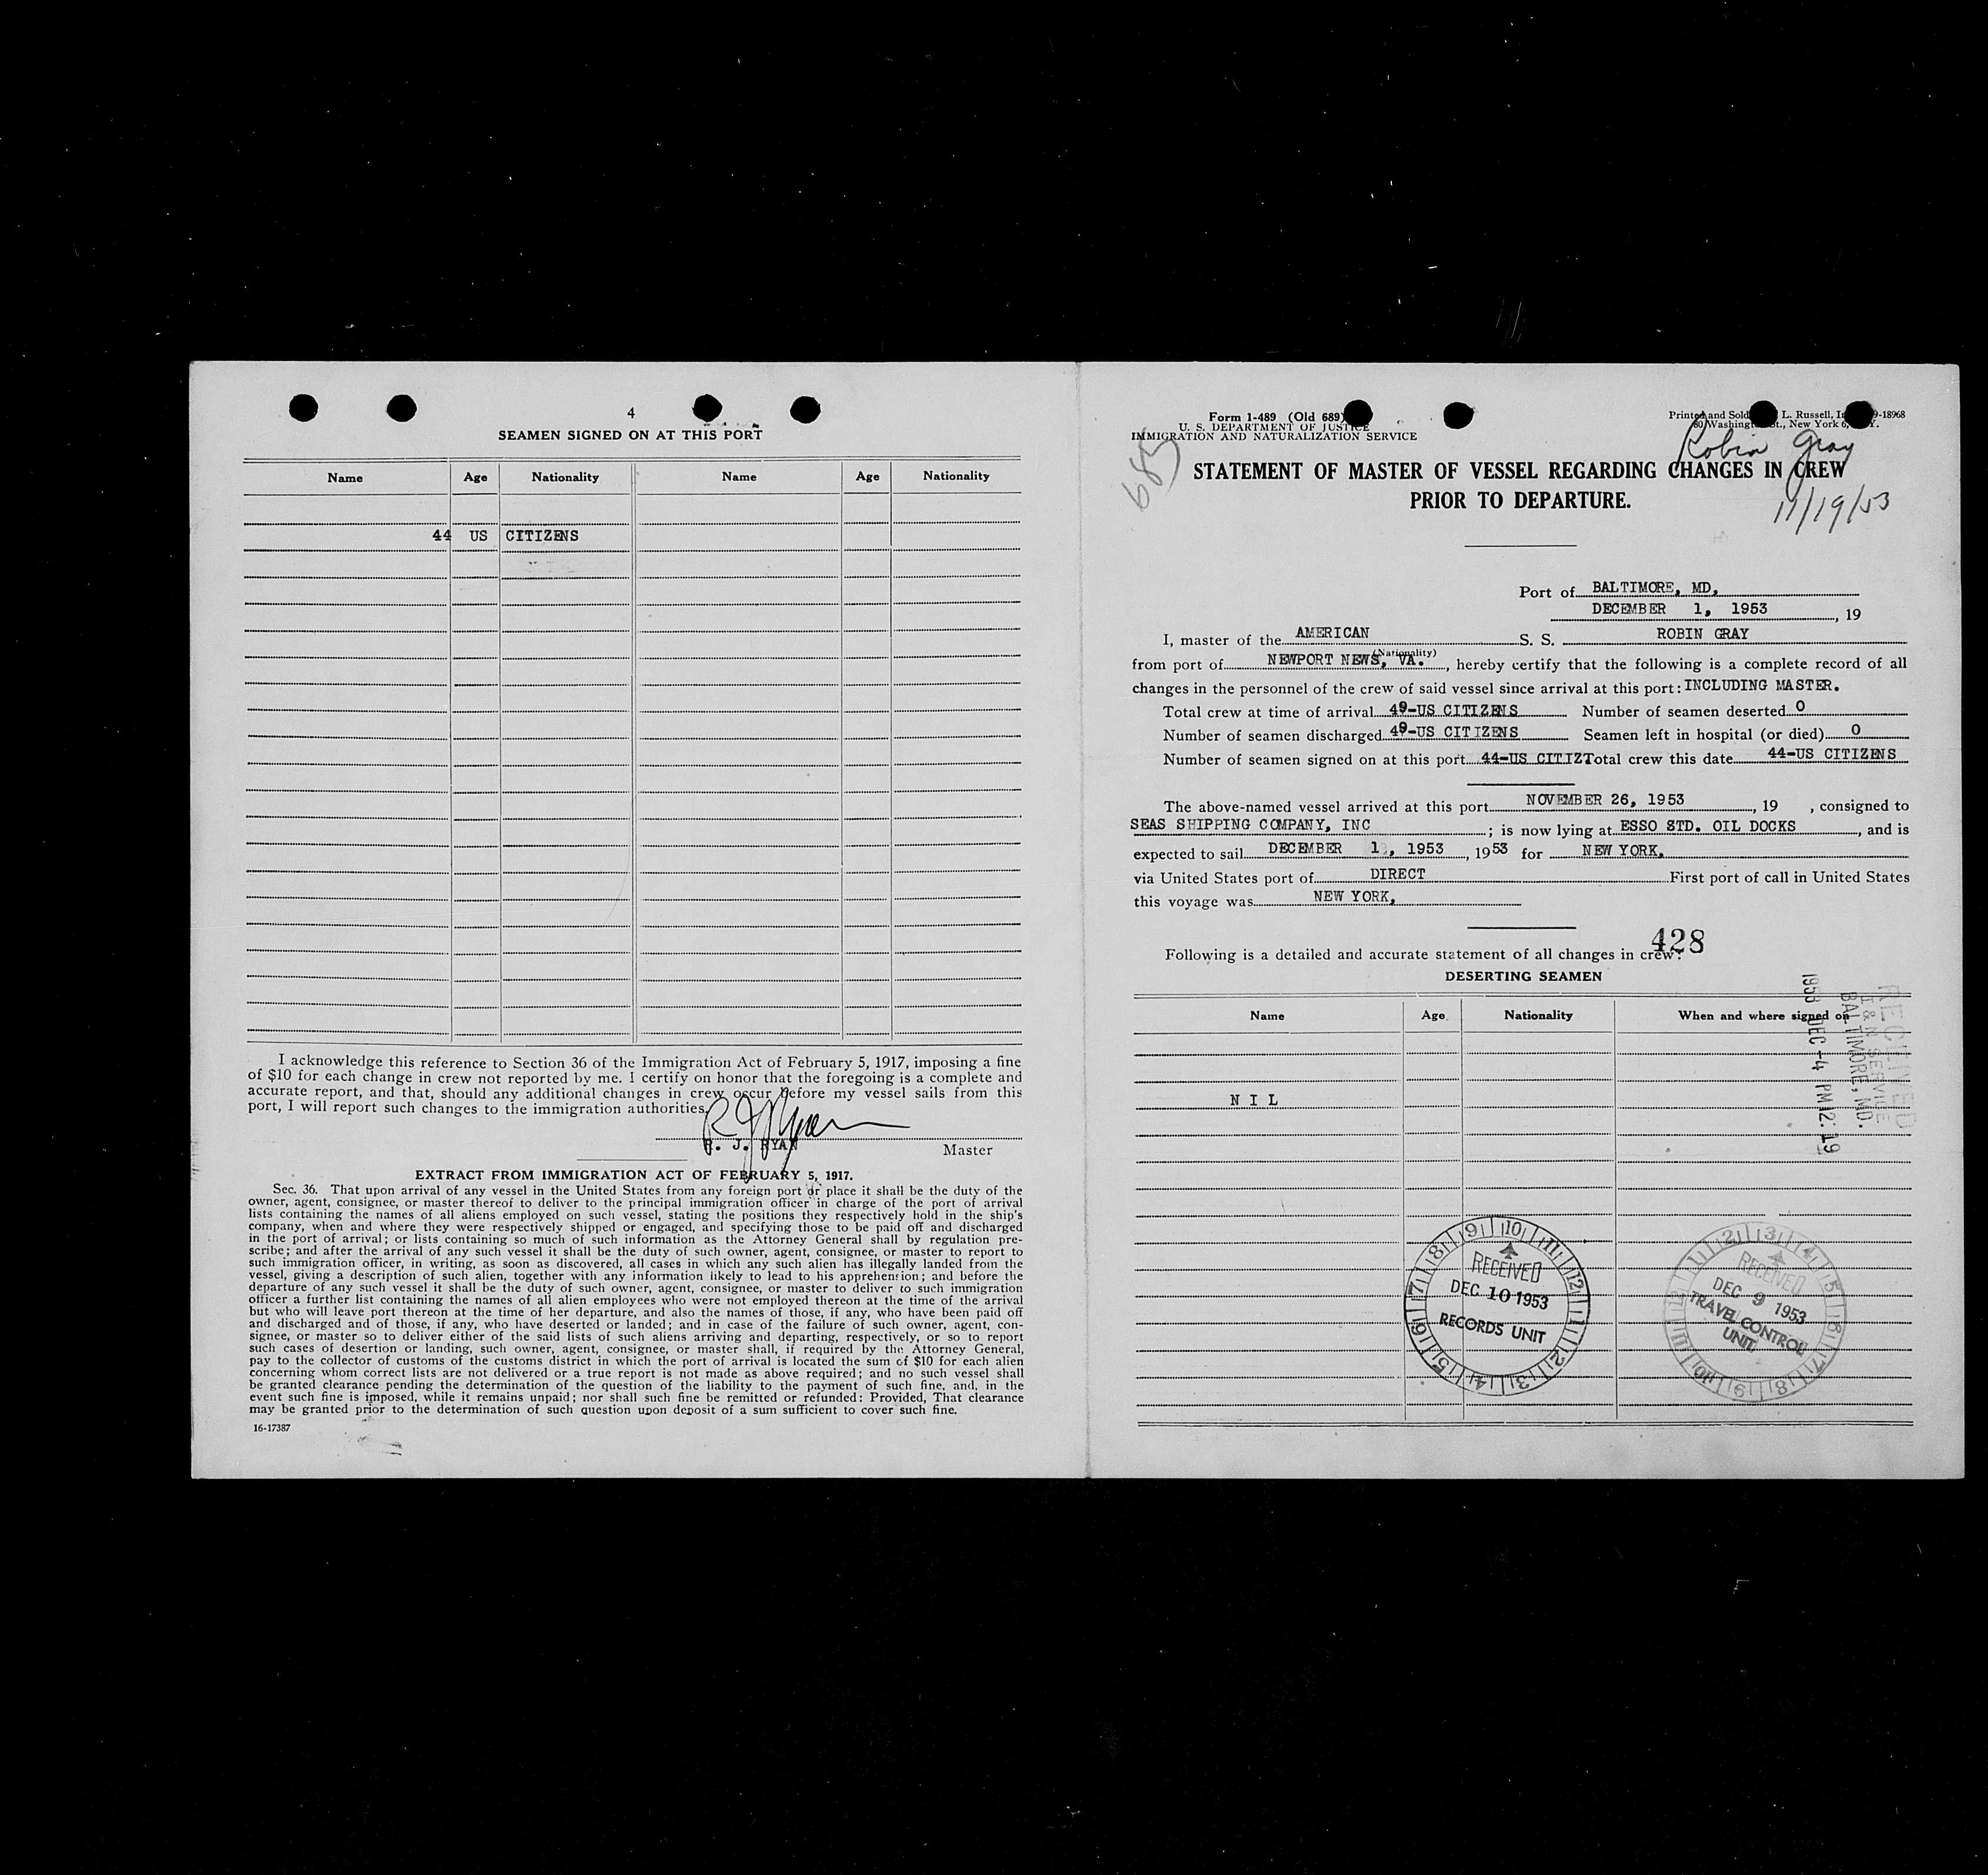 4
SEAMEN SIGNED ON AT THIS PORT
Name Age Nationality Name Age Nationality
44 US CITIZENS
I acknowledge this reference to Section 36 of the Immigration Act of February 5, 1917, imposing a fine
of $10 for each change in crew not reported by me. I certify on honor that the foregoing is a complete and
accurate report, and that, should any additional changes in crew occur before my vessel sails from this
port, I will report such changes to the immigration authorities.
R. J. RYAN
Master
EXTRACT FROM IMMIGRATION ACT OF FEBRUARY 5, 1917.
Sec. 36. That upon arrival of any vessel in the United States from any foreign port or place it shall be the duty of the
owner, agent, consignee, or master thereof to deliver to the principal immigration officer in charge of the port of arrival
lists containing the names of all aliens employed on such vessel, stating the positions they respectively hold in the ship's
company, when and where they were respectively shipped or engaged, and specifying those to be paid off and discharged
in the port of arrival; or lists containing so much of such information as the Attorney General shall by regulation pre-
scribe; and after the arrival of any such vessel it shall be the duty of such owner, agent, consignee, or master to report to
such immigration officer, in writing, as soon as discovered, all cases in which any such alien has illegally landed from the
vessel, giving a description of such alien, together with any information likely to lead to his apprehension; and before the
departure of any such vessel it shall be the duty of such owner, agent, consignee, or master to deliver to such immigration
officer a further list containing the names of all alien employees who were not employed thereon at the time of the arrival
but who will leave port thereon at the time of her departure, and also the names of those, if any, who have been paid off
and discharged and of those, if any, who have deserted or landed; and in case of the failure of such owner, agent, con-
signee, or master so to deliver either of the said lists of such aliens arriving and departing, respectively, or so to report
such cases of desertion or landing, such owner, agent, consignee, or master shall, if required by the Attorney General,
pay to the collector of customs of the customs district in which the port of arrival is located the sum of $10 for each alien
concerning whom correct lists are not delivered or a true report is not made as above required; and no such vessel shall
be granted clearance pending the determination of the question of the liability to the payment of such fine, and, in the
event such fine is imposed, while it remains unpaid; nor shall such fine be remitted or refunded: Provided, That clearance
may be granted prior to the determination of such question upon deposit of a sum sufficient to cover such fine.
16-17387
Form 1-489 (Old 689)
U. S. DEPARTMENT OF JUSTICE
IMMIGRATION AND NATURALIZATION SERVICE
Printed and Sold L. Russell, 9-18968
80 Washington St., New York 6, N.Y.
685
Robin Gray
11/19/53
STATEMENT OF MASTER OF VESSEL REGARDING CHANGES IN CREW
PRIOR TO DEPARTURE.
Port of BALTIMORE, MD,
DECEMBER 1, 1953, 19
I, master of the AMERICAN S. S. ROBIN GRAY
(Nationality)
from port of NEWPORT NEWS, VA., hereby certify that the following is a complete record of all
changes in the personnel of the crew of said vessel since arrival at this port: INCLUDING MASTER.
Total crew at time of arrival 49-US CITIZENS Number of seamen deserted 0
Number of seamen discharged 49-US CITIZENS Seamen left in hospital (or died) 0
Number of seamen signed on at this port 44-US CITIZ Total crew this date 44-US CITIZENS
The above-named vessel arrived at this port NOVEMBER 26, 1953, 19 , consigned to
SEAS SHIPPING COMPANY, INC ; is now lying at ESSO STD. OIL DOCKS, and is
expected to sail DECEMBER 1, 1953, 1953 for NEW YORK,
via United States port of DIRECT First port of call in United States
this voyage was NEW YORK,
428
Following is a detailed and accurate statement of all changes in crew:
DESERTING SEAMEN
Name Age Nationality When and where signed on
N I L
RECEIVED
I & N SERVICE
BALTIMORE, MD.
1953 DEC -4 PM 12:19
9 10 11 12 1 2 3 4 5 6 7 8
RECEIVED
DEC 10 1953
RECORDS UNIT
1 2 3 4 5 6 7 8 9 10 11 12
RECEIVED
DEC 9 1953
TRAVEL CONTROL
UNIT